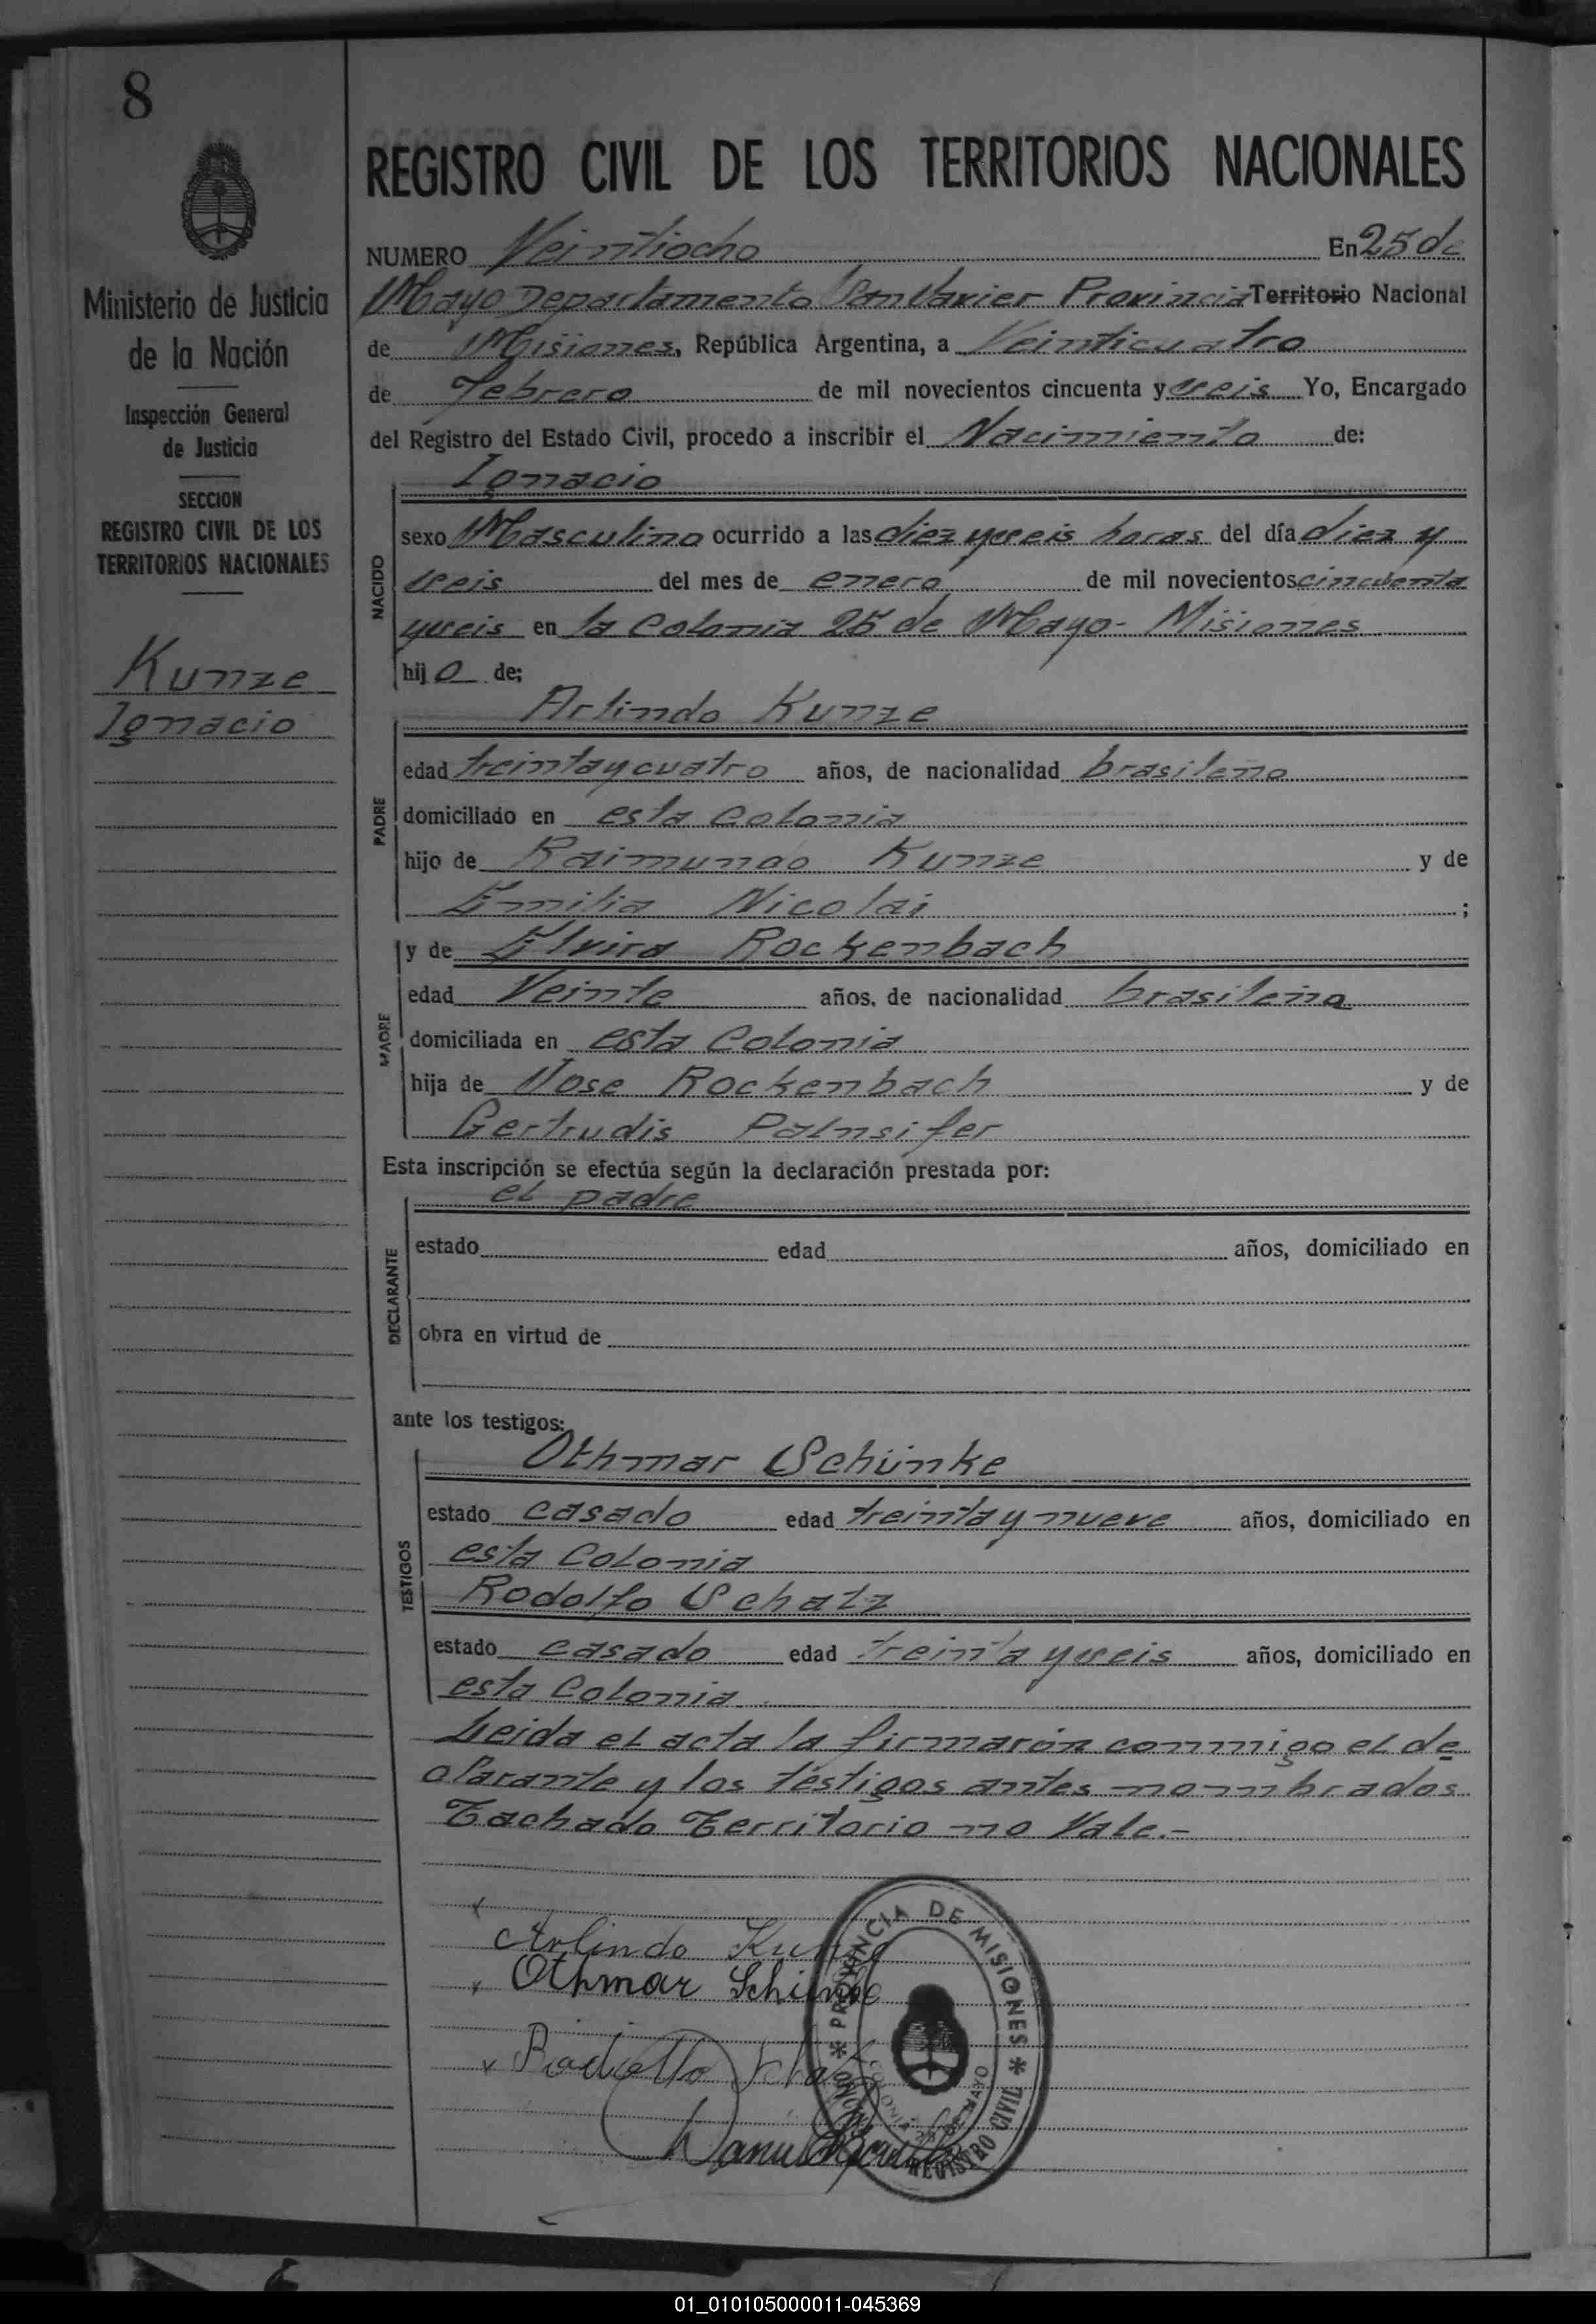 8
Ministerio de Justicia
de la Nación
Inspección General
de Justicia
SECCION
REGISTRO CIVIL DE LOS
TERRITORIOS NACIONALES
Kunze
Ignacio
REGISTRO CIVIL DE LOS TERRITORIOS NACIONALES
NUMERO Veintiocho En 25 de
Mayo Departamento San Javier Provincia Territorio Nacional
de Misiones, República Argentina, a Veinticuatro
de febrero de mil novecientos cincuenta y seis Yo, Encargado
del Registro del Estado Civil, procedo a inscribir el Nacimiento de:
Ignacio
NACIDO
sexo Masculino ocurrido a las diez y seis horas del día diez y
seis del mes de enero de mil novecientos cincuenta
y seis en la Colonia 25 de Mayo - Misiones
hijo de;
Arlindo Kunze
PADRE
edad treinta y cuatro años, de nacionalidad brasileño
domiciliado en esta Colonia
hijo de Raimundo Kunze y de
Emilia Nicolai ;
y de Elvira Rockenbach
MADRE
edad Veinte años, de nacionalidad brasileña
domiciliada en esta Colonia
hija de Jose Rockenbach y de
Gertrudis Palnsifer
Esta inscripción se efectúa según la declaración prestada por:
el padre
DECLARANTE
estado edad años, domiciliado en
obra en virtud de
ante los testigos:
Othmar Schünke
TESTIGOS
estado casado edad treinta y nueve años, domiciliado en
esta Colonia
Rodolfo Schatz
estado casado edad treinta y seis años, domiciliado en
esta Colonia
Leida el acta la firmarón conmigo el de
clarante y los téstigos antes nombrados
Tachado Territorio no Vale.-
Arlindo Kunze
Othmar Schünke
Rodolfo Schatz
PROVINCIA DE MISIONES
REGISTRO CIVIL
01_010105000011-045369